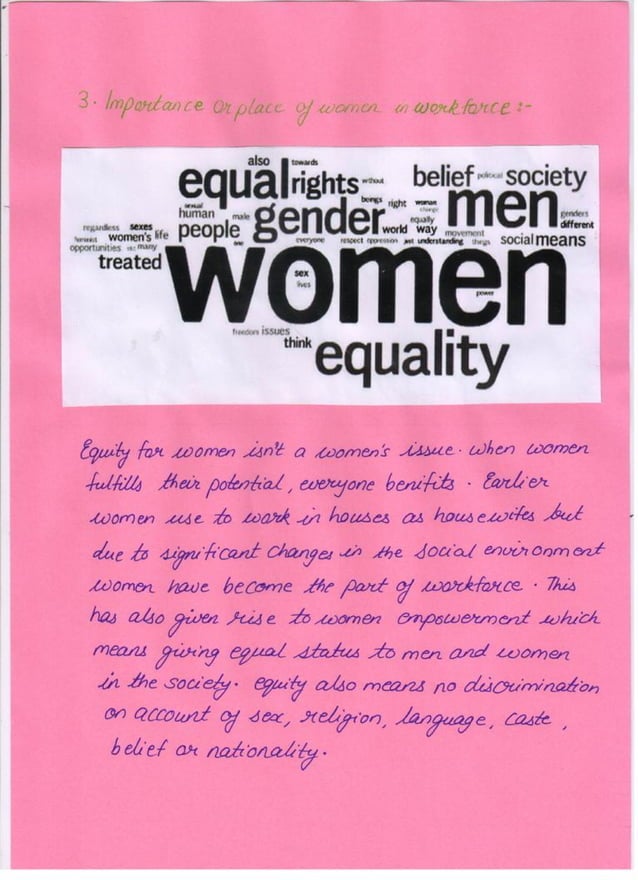 3. Importance or place of women in workforce :-
also towards
equal rights without belief political society
sexual beings right woman men genders
human male gender change
people equally different
regardless sexes world way movement
feminist women's life one everyone respect oppression just understanding things social means
opportunities etc many
treated women
sex
lives
power
freedom issues
think equality
Equity for women isn't a women's issue. When women
fulfills their potential, everyone benifits. Earlier
women use to work in houses as housewifes but
due to significant changes in the social environment
women have become the part of workforce. This
has also given rise to women empowerment which
means giving equal status to men and women
in the society. equity also means no discrimination
on account of sex, religion, language, caste,
belief or nationality.